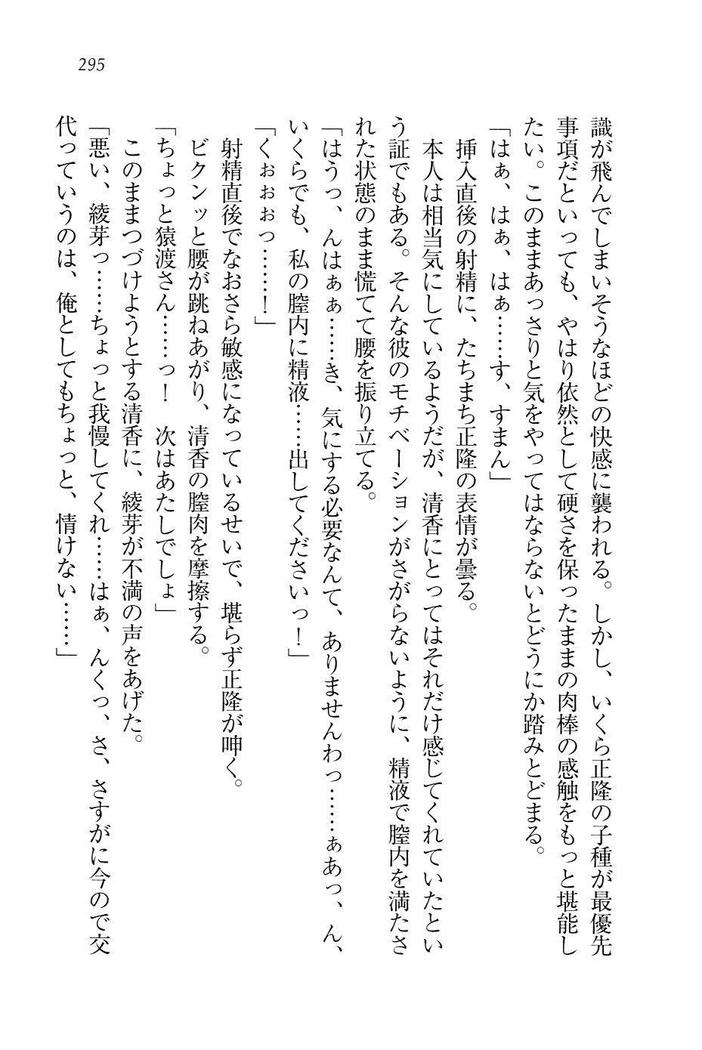 295
識が飛んでしまいそうなほどの快感に襲われる。しかし、いくら正隆の子種が最優先
事項だといっても、やはり依然として硬さを保ったままの肉棒の感触をもっと堪能し
たい。このままあっさりと気をやってはならないとどうにか踏みとどまる。
「はぁ、はぁ、はぁ……す、すまん」
挿入直後の射精に、たちまち正隆の表情が曇る。
本人は相当気にしているようだが、清香にとってはそれだけ感じてくれていたとい
う証でもある。そんな彼のモチベーションがさがらないように、精液で膣内を満たさ
れた状態のまま慌てて腰を振り立てる。
「はうっ、んはぁぁ……き、気にする必要なんて、ありませんわっ……ぁあっ、ん、
いくらでも、私の膣内に精液……出してくださいっ！」
「くぉぉぉっ……！」
射精直後でなおさら敏感になっているせいで、堪らず正隆が呻く。
ビクンッと腰が跳ねあがり、清香の膣肉を摩擦する。
「ちょっと猿渡さん……っ！　次はあたしでしょ」
このままつづけようとする清香に、綾芽が不満の声をあげた。
「悪い、綾芽っ……ちょっと我慢してくれ……はぁ、んくっ、さ、さすがに今ので交
代っていうのは、俺としてもちょっと、情けない……」